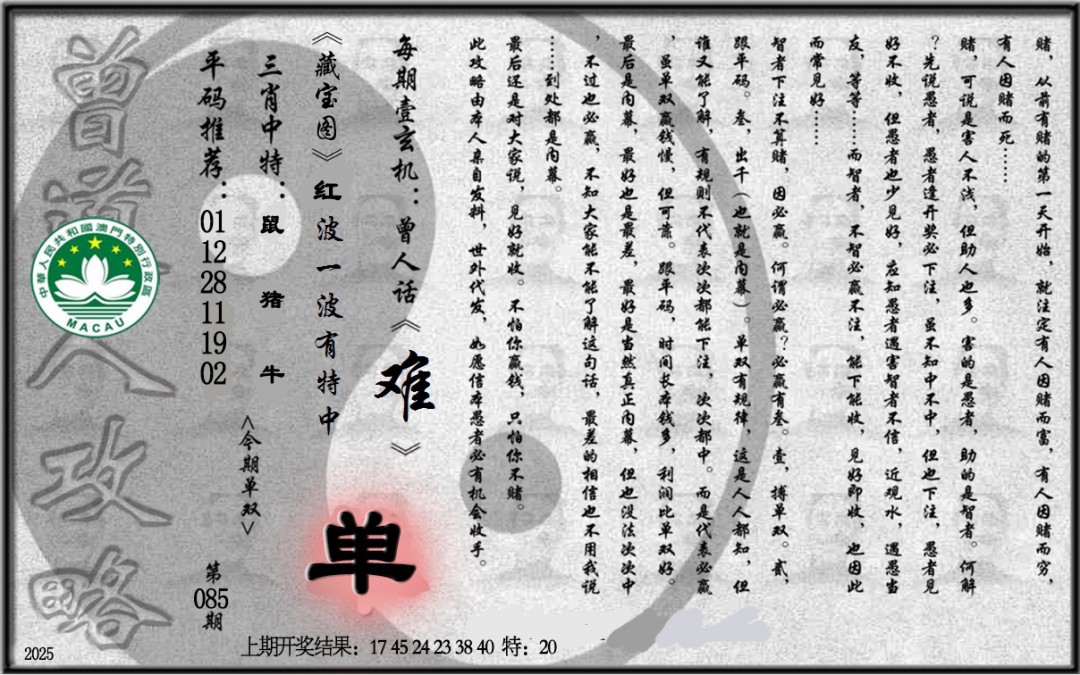 赌，从前有赌的第一天开始，就注定有人因赌而富，有人因赌而穷，
有人因赌而死……
赌，可说是害人不浅，但助人也多。害的是愚者，助的是智者。何解
？先说愚者，愚者逢开奖必下注，虽不知中不中，但也下注，愚者见
好不收，但愚者也少见好，应知愚者遇害智者不信，近观水，遇愚当
友，等等……而智者，不智必赢不注，能下能收，见好即收，也因此
而常见好……
智者下注不算赌，因必赢。何谓必赢？必赢有叁。壹，搏单双。贰，
跟平码。叁，出千（也就是内幕）。单双有规律，这是人人都知，但
谁又能了解，有规则不代表次次都能下注，次次都中。而是代表必赢
，虽单双赢钱慢，但可靠。跟平码，时间长本钱多，利润比单双好。
最后是内幕，最好也是最差，最好是当然真正内幕，但也没法次次中
，不过也必赢，不知大家能不能了解这句话，最差的相信也不用我说
……到处都是内幕。
最后还是对大家说，见好就收。不怕你赢钱，只怕你不赌。
此攻略由本人亲自发料，世外代发，如愿信本愚者必有机会收手。
每期壹玄机：曾人话《难》
《藏宝图》红波一波有特中
单
三肖中特：鼠猪牛
<今期单双>
平码推荐：01 12 28 11 19 02
第085期
曾道人攻略
中華人民共和國澳門特別行政區
MACAU
上期开奖结果：17 45 24 23 38 40 特：20
2025